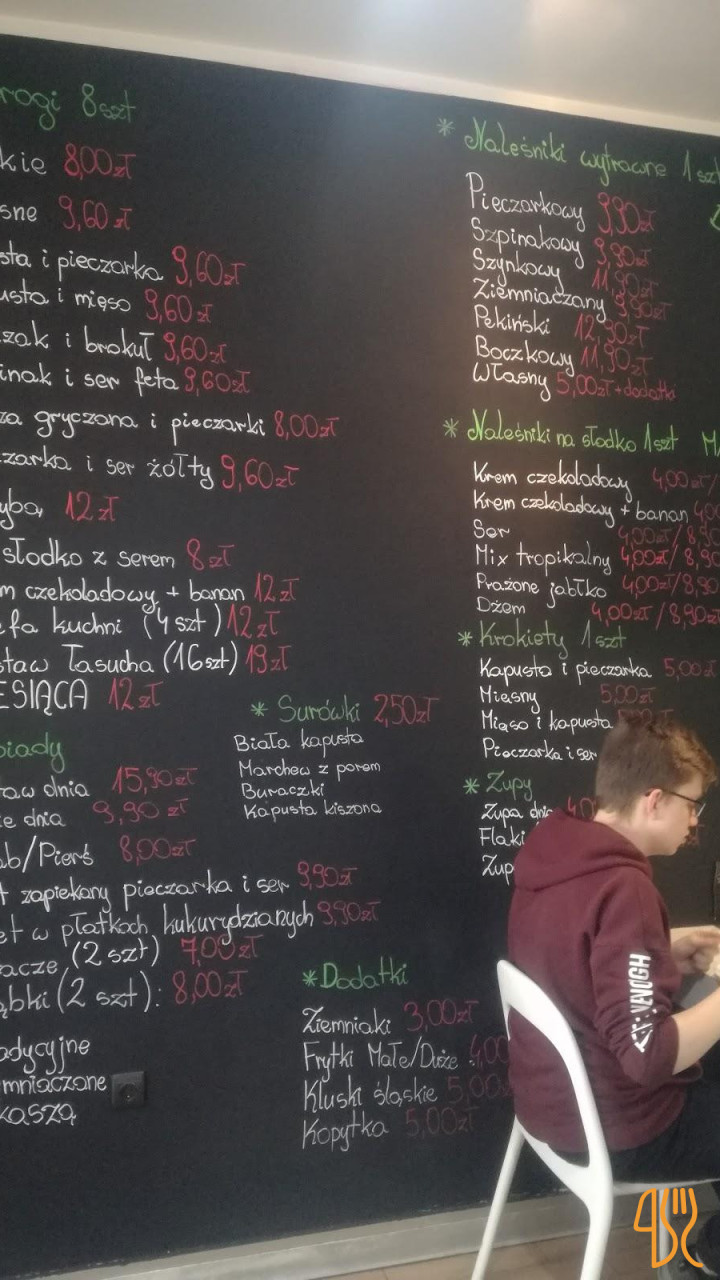 rogi 8szt
kie 8,00zł
sne 9,60zł
sta i pieczarka 9,60zł
usta i mięso 9,60zł
zak i brokuł 9,60zł
inak i ser feta 9,60zł
za gryczana i pieczarki 8,00zł
czarka i ser żółty 9,60zł
yba 12zł
słodko z serem 8zł
m czekoladowy + banan 12zł
efa kuchni (4szt) 12zł
staw Łasucha (16szt) 19zł
ESIĄCA 12zł
biady
taw dnia 15,90zł
ie dnia 9,90zł
ab/Pierś 8,00zł
t zapiekany pieczarka i ser 9,90zł
et w płatkach kukurydzianych 9,90zł
acze (2 szt) 7,00zł
ąbki (2 szt): 8,00zł
adycyjne
mniaczane
kaszą
* Surówki 2,50zł
Biała kapusta
Marchew z porem
Buraczki
Kapusta kiszona
* Dodatki
Ziemniaki 3,00zł
Frytki Małe/Duże 4,00
Kluski śląskie 5,00
Kopytka 5,00zł
* Naleśniki wytrawne 1szt
Pieczarkowy 9,90zł
Szpinakowy 9,90zł
Szynkowy 11,90zł
Ziemniaczany 9,90zł
Pekiński 12,90zł
Boczkowy 11,90zł
Własny 5,00zł+dodatki
* Naleśniki na słodko 1szt M
Krem czekoladowy 4,00zł/
Krem czekoladowy + banan 4,00
Ser 4,00zł/8,90
Mix tropikalny 4,00zł/8,90
Prażone jabłko 4,00zł/8,90
Dżem 4,00zł/8,90zł
* Krokiety 1szt
Kapusta i pieczarka 5,00zł
Mięsny 5,00zł
Mięso i kapusta
Pieczarka i ser
* Zupy
Zupa dnia 4,0
Flaki
Zup